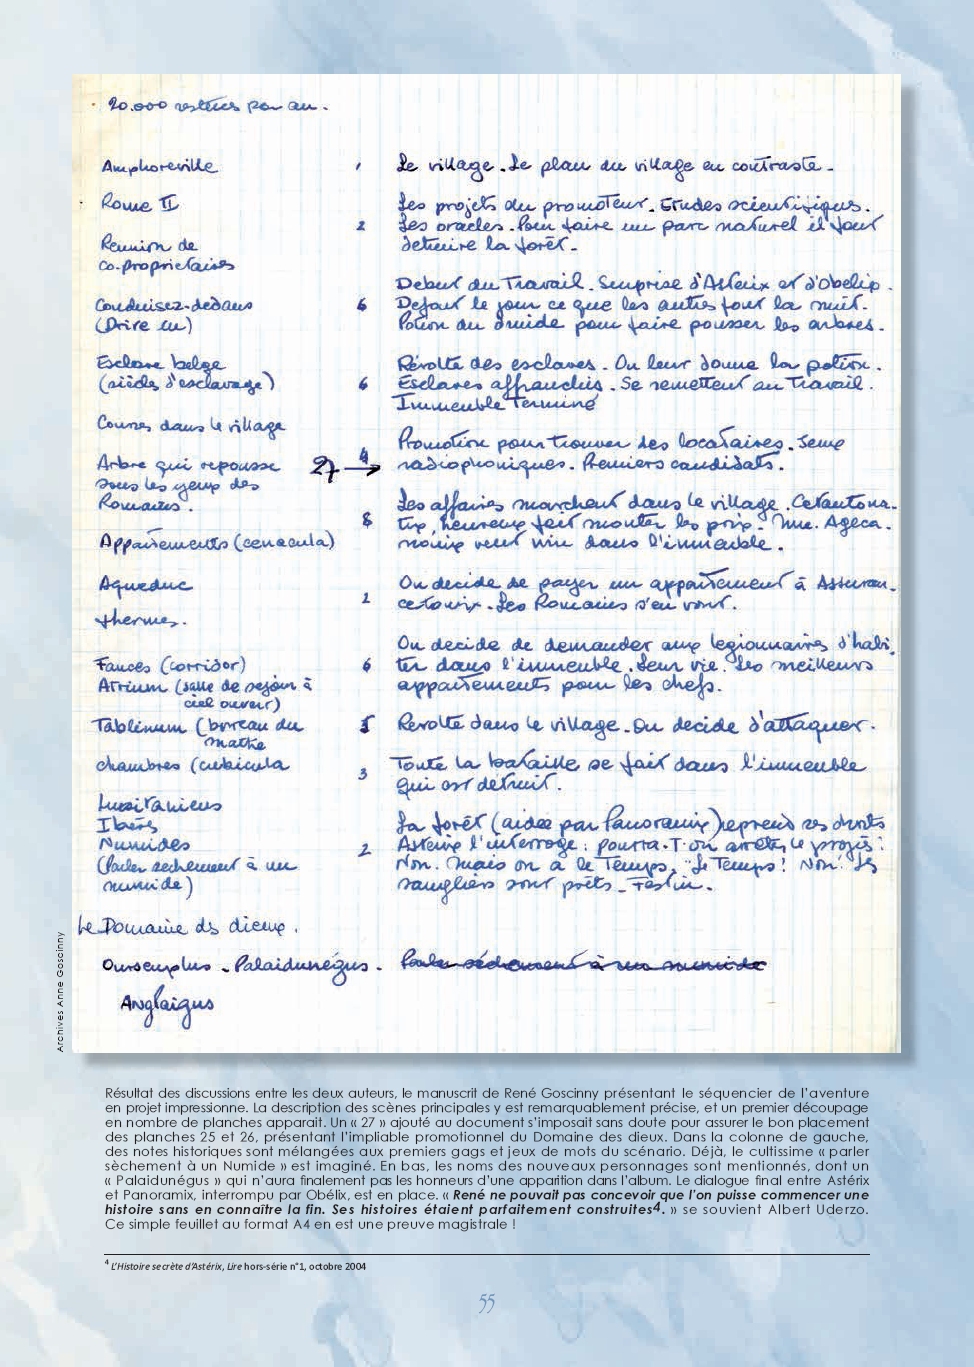 20.000 sesterces par an.
Amphoreville
Rome II
Réunion de
co-proprietaires
Conduisez-dedans
(Drive in)
Esclave belge
(siècles d'esclavage)
Courses dans le village
Arbre qui repousse
sous les yeux des
Romains.
Appartements (cenacula)
Aqueduc
thermes.
Fauces (corridor)
Atrium (salle de sejour à
ciel ouvert)
Tablinum (bureau du
maître
chambres (cubicula
Lusitaniens
Ibères
Numides
(Parler sechement à un
numide)
1 Le village. Le plan du village en contraste.
Les projets du promoteur. Etudes scientifiques.
2 Les oracles. Pour faire un parc naturel il faut
detruire la forêt.
Debut du Travail. Surprise d'Asterix et d'Obelix.
6 Defont le jour ce que les autres font la nuit.
Potion du druide pour faire pousser les arbres.
Révolte des esclaves. On leur donne la potion.
6 Esclaves affranchis. Se remettent au Travail.
Immeuble Terminé
Promotion pour trouver des locataires. Jeux
27 → 4 radiophoniques. Premiers candidats.
Les affaires marchent dans le village. Cetautoma-
8 tix, heureux fait monter les prix. Mme. Ageca-
nonix veut vivre dans l'immeuble.
On decide de payer un appartement à Assuran-
2 cetourix. Les Romains s'en vont.
On decide de demander aux legionnaires d'habi-
6 ter dans l'immeuble. Leur vie. Les meilleurs
appartements pour les chefs.
Revolte dans le village. On decide d'attaquer.
3 Toute la bataille se fait dans l'immeuble
qui est détruit.
La forêt (aidée par Panoramix) reprend ses droits
2 Asterix l'interroge: pourra-T-on arrêter le progrès?
Non. Mais on a le Temps. "Le Temps! Non! Les
sangliers sont prêts. Festin.
Le Domaine des dieux.
Oursenplus - Palaidunégus - Parler séchement à un numide
Anglaigus
Archives Anne Goscinny
Résultat des discussions entre les deux auteurs, le manuscrit de René Goscinny présentant le séquencier de l'aventure
en projet impressionne. La description des scènes principales y est remarquablement précise, et un premier découpage
en nombre de planches apparait. Un « 27 » ajouté au document s'imposait sans doute pour assurer le bon placement
des planches 25 et 26, présentant l'impliable promotionnel du Domaine des dieux. Dans la colonne de gauche,
des notes historiques sont mélangées aux premiers gags et jeux de mots du scénario. Déjà, le cultissime « parler
sèchement à un Numide » est imaginé. En bas, les noms des nouveaux personnages sont mentionnés, dont un
« Palaidunégus » qui n'aura finalement pas les honneurs d'une apparition dans l'album. Le dialogue final entre Astérix
et Panoramix, interrompu par Obélix, est en place. « René ne pouvait pas concevoir que l'on puisse commencer une
histoire sans en connaître la fin. Ses histoires étaient parfaitement construites4. » se souvient Albert Uderzo.
Ce simple feuillet au format A4 en est une preuve magistrale !
4 L'Histoire secrète d'Astérix, Lire hors-série n°1, octobre 2004
55